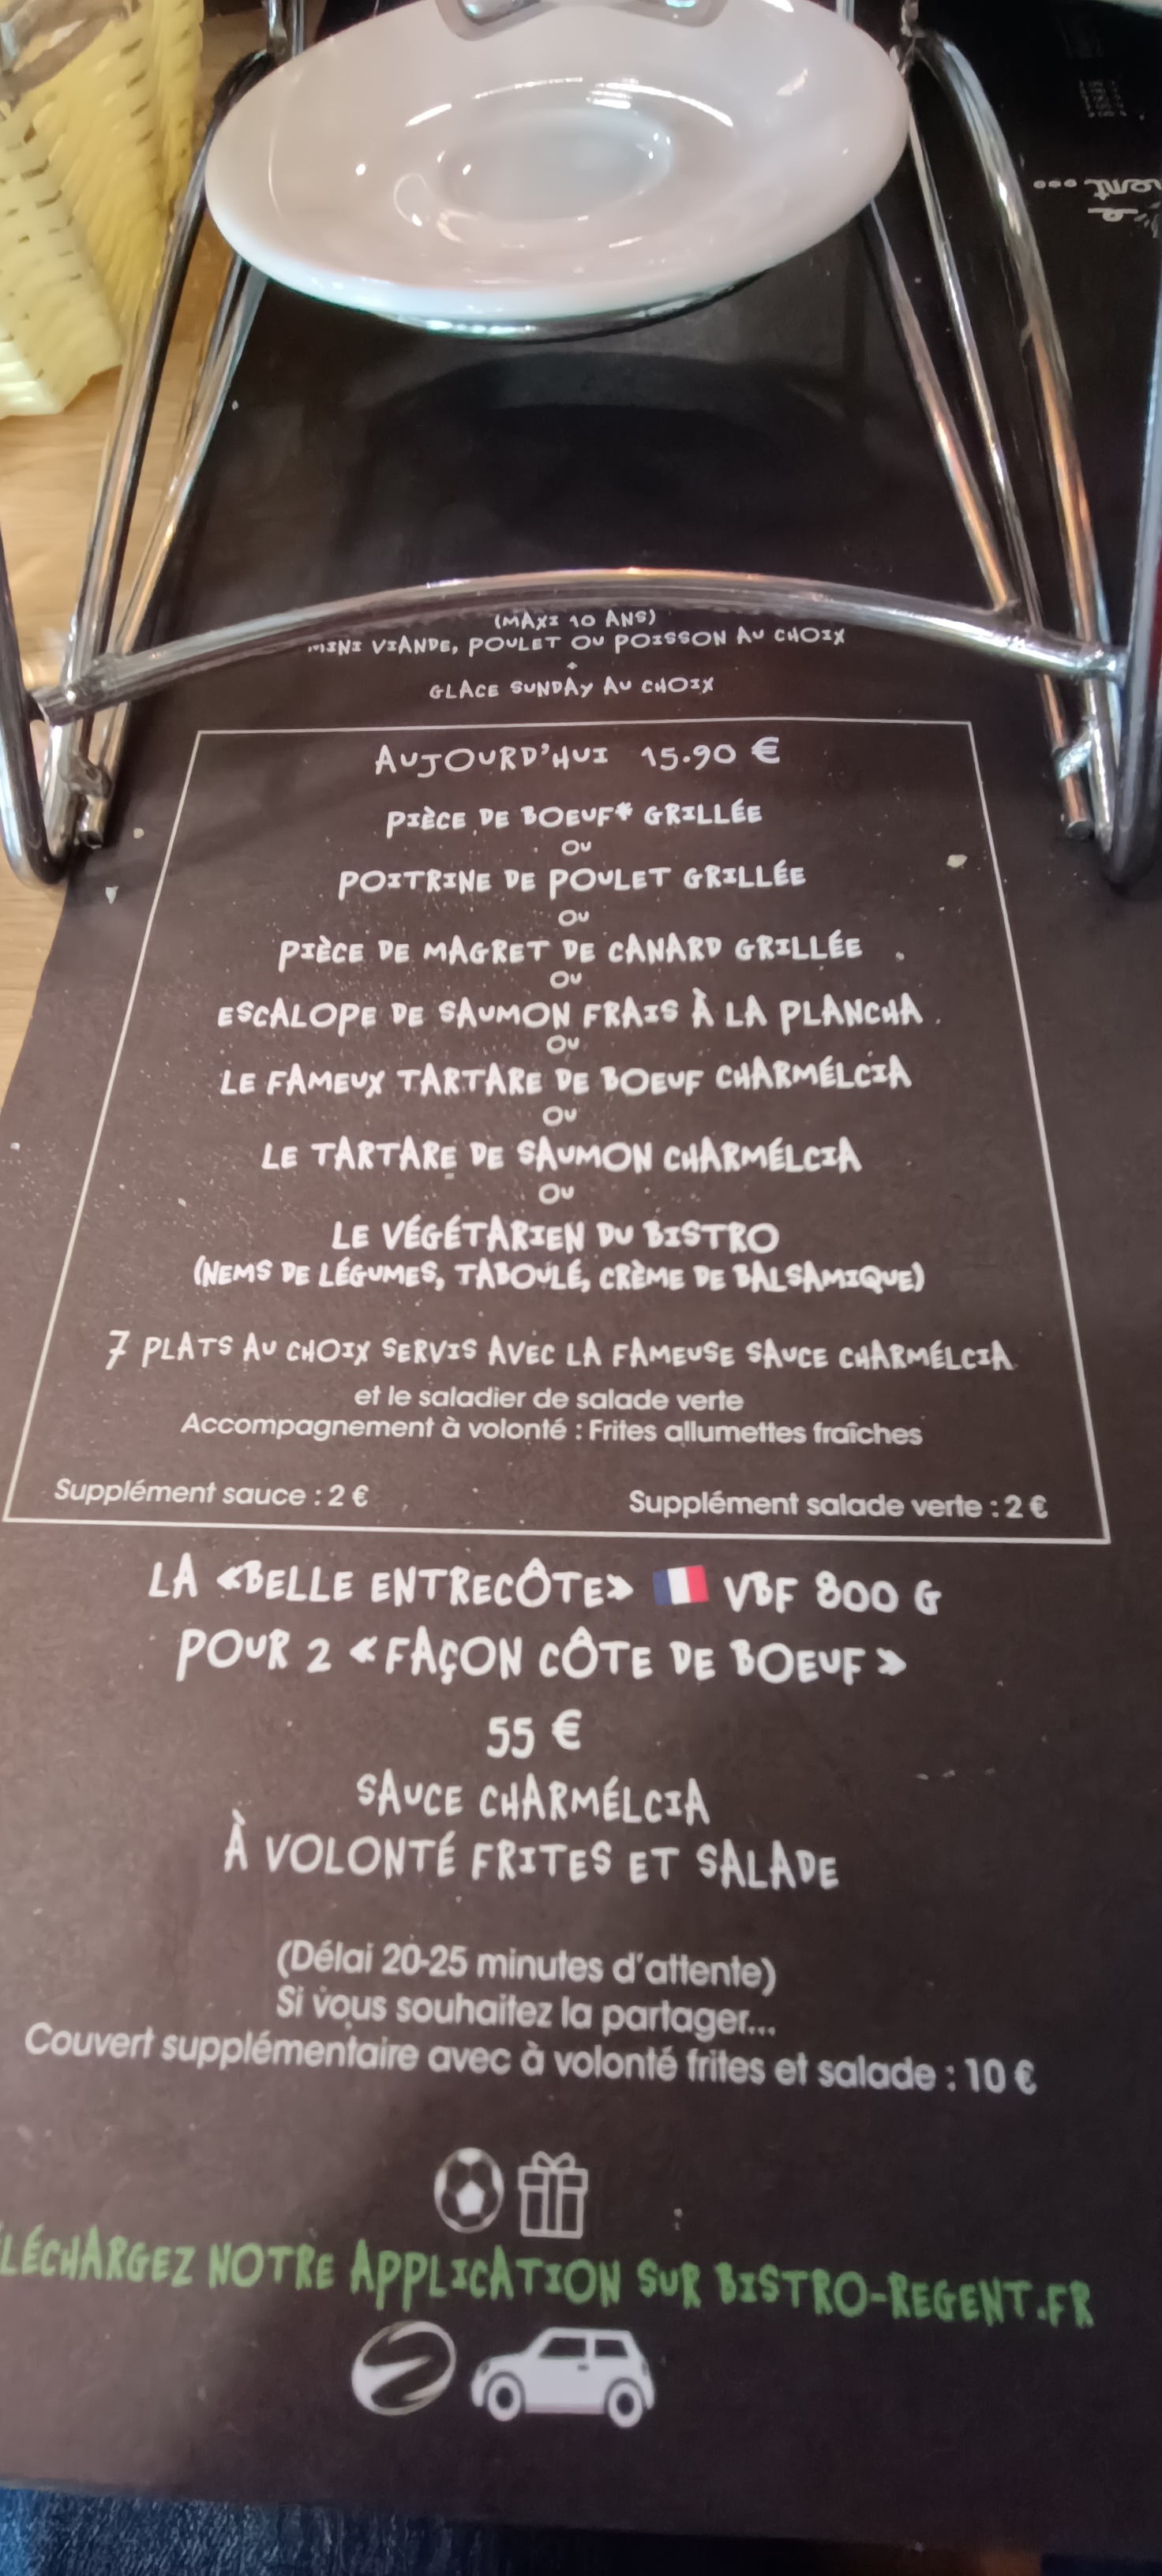 (MAXI 10 ANS)
MINI VIANDE, POULET OU POISSON AU CHOIX
+
GLACE SUNDAY AU CHOIX
AUJOURD'HUI 15.90 €
PIÈCE DE BOEUF* GRILLÉE
OU
POITRINE DE POULET GRILLÉE
OU
PIÈCE DE MAGRET DE CANARD GRILLÉE
OU
ESCALOPE DE SAUMON FRAIS À LA PLANCHA
OU
LE FAMEUX TARTARE DE BOEUF CHARMÉLCIA
OU
LE TARTARE DE SAUMON CHARMÉLCIA
OU
LE VÉGÉTARIEN DU BISTRO
(NEMS DE LÉGUMES, TABOULÉ, CRÈME DE BALSAMIQUE)
7 PLATS AU CHOIX SERVIS AVEC LA FAMEUSE SAUCE CHARMÉLCIA
et le saladier de salade verte
Accompagnement à volonté : Frites allumettes fraîches
Supplément sauce : 2 €
Supplément salade verte : 2 €
LA «BELLE ENTRECÔTE» VBF 800 G
POUR 2 « FAÇON CÔTE DE BOEUF »
55 €
SAUCE CHARMÉLCIA
À VOLONTÉ FRITES ET SALADE
(Délai 20-25 minutes d'attente)
Si vous souhaitez la partager...
Couvert supplémentaire avec à volonté frites et salade : 10 €
ÉLÉCHARGEZ NOTRE APPLICATION SUR BISTRO-REGENT.FR